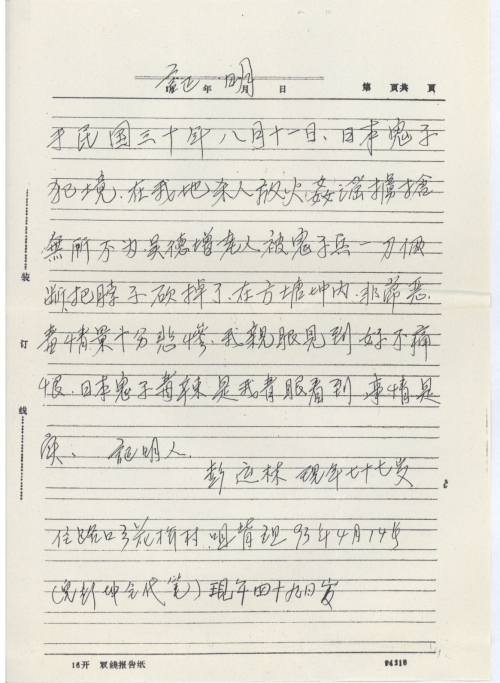 証明
年 月 日 第 页共 页
于民国三十年八月十一日、日本鬼子
犯境、在我地杀人放火、姦淫擄搶
無所不为、吴德增老人被鬼子兵一刀
断、把脖子砍掉了、在方塘坤内、非常恶
毒、情景十分悲惨、我親眼見到好不痛
恨、日本鬼子毒辣是我看眼看到、事情是
实、 証明人、
彭 林 现年七十七岁
住路口 花桥村、 93年4月14号
(兒彭坤 代笔)現年四十九岁
装
订
线
16开 双线报告纸
84316